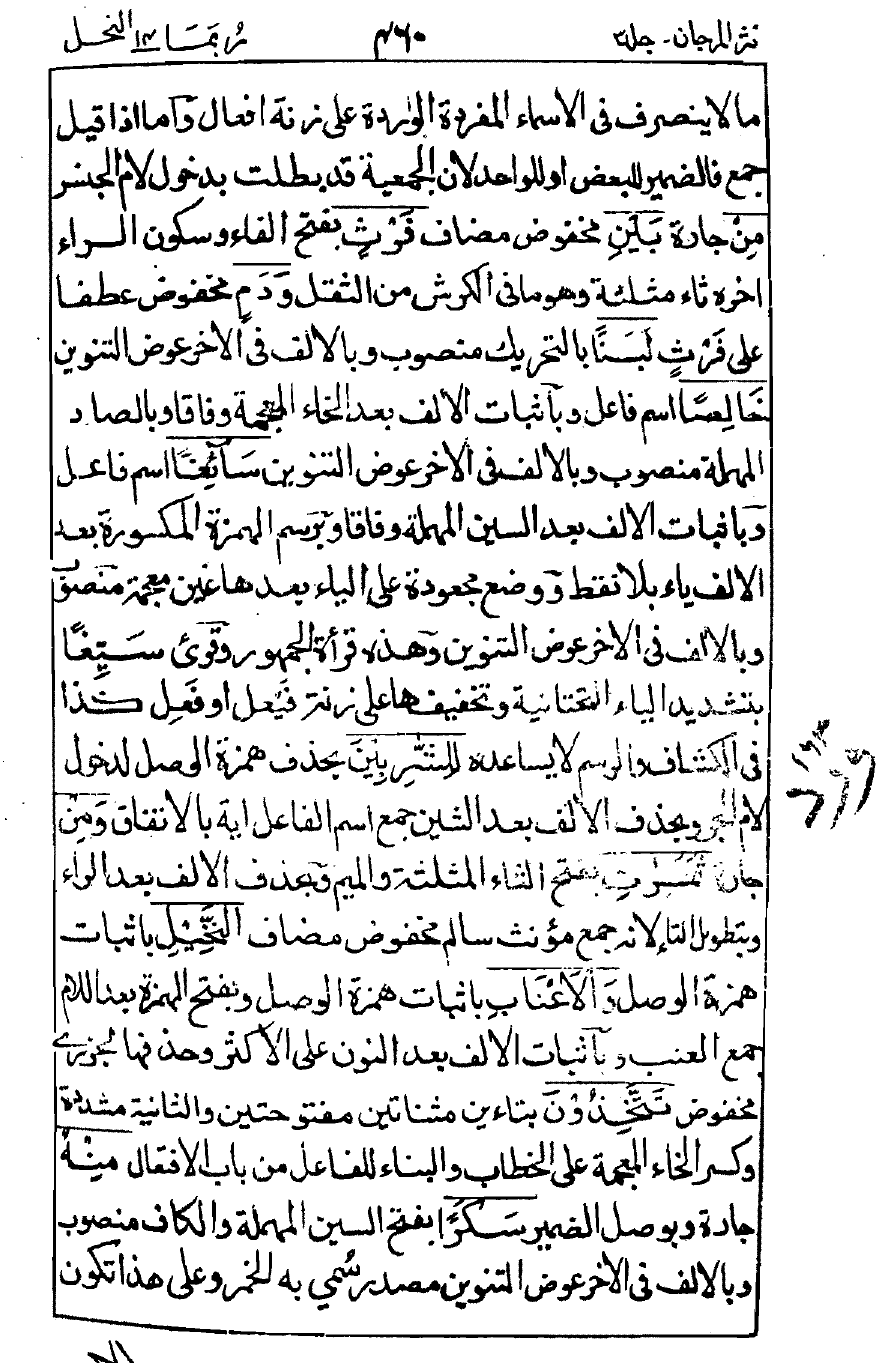 نثر المرجان - جلد٣ ٤٦٠ ربما ١٤ النحل
ما لا ينصرف فى الاسماء المفردة الواردة على زنة افعال وآما اذا قيل
جمع فالضمير للبعض او للواحد لان الجمعية قد بطلت بدخول لام الجنس
مِنْ جارة بَيْنِ مخفوض مضاف فَرْثٍ بفتح الفاء وسكون الراء
اخره ثاء مثلثة وهو ما فى الكرش من الثقل وَّدَمٍ مخفوض عطفا
على فَرْثٍ لَّبَنًا بالتحريك منصوب وبالالف فى الاخر عوض التنوين
خَالِصًا اسم فاعل وبآثبات الالف بعد الخاء المعجمة وفاقا وبالصاد
المهملة منصوب وبالالف فى الاخر عوض التنوين سَآئِغًا اسم فاعل
وباثبات الالف بعد السين المهملة وفاقا وبرسم الهمزة المكسورة بعد
الالف ياء بلا نقط ووضع مجعودة على الياء بعدها غين معجمة منصوب
وبالالف فى الاخر عوض التنوين وهذه قرأة الجمهور وقرئ سَيِّغًا
بتشديد الياء التحتانية وتخفيفها على زنة فَيْعل او فَعِل كذا
فى الكشاف والرسم لا يساعده لِلشّٰرِبِيْنَ بحذف همزة الوصل لدخول
لام الجر وبحذف الالف بعد الشين جمع اسم الفاعل اية بالاتفاق وَمِنْ
جارة ثَمَرٰتِ بفتح الثاء المثلثة والميم وبحذف الالف بعد الراء
وبتطويل التاء لانه جمع مؤنث سالم مخفوض مضاف النَّخِيْلِ باثبات
همزة الوصل وَالْاَعْنَابِ باثبات همزة الوصل وبفتح الهمزة بعد اللام
جمع العنب وبآثبات الالف بعد النون على الاكثر وحذفها الجزرى
مخفوض تَتَّخِذُوْنَ بتاءين مثناتين مفتوحتين والثانية مشددة
وكسر الخاء المعجمة على الخطاب والبناء للفاعل من باب الافتعال مِنْهُ
جارة وبوصل الضمير سَكَرًا بفتح السين المهملة والكاف منصوب
وبالالف فى الاخر عوض التنوين مصدر سُمي به الخمر وعلى هذا تكون